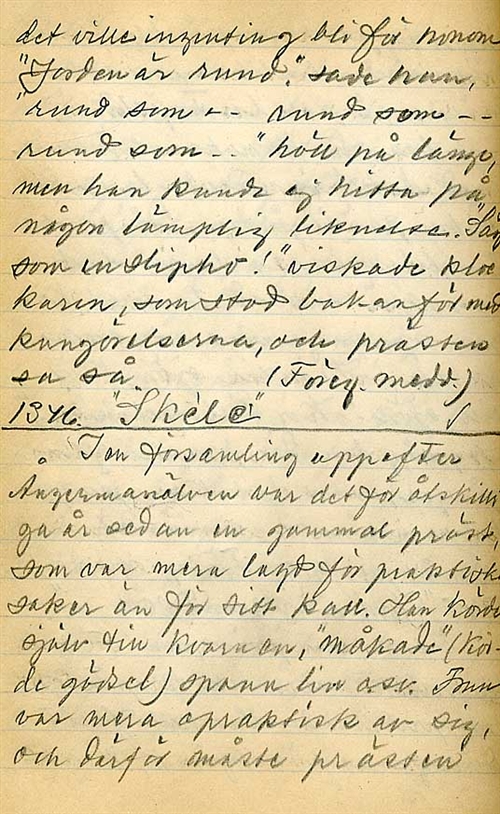 det ville ingenting bli för honom
"Jorden är rund." sade han,
"rund som -- rund som --
rund som --" höll på länge,
men han kunde ej hitta på
någon lämplig liknelse. "Säg
som en sliphö!" viskade kloc
karen, som stod bakanför med
kungörelserna, och prästen
sa så. (Föreg. medd.)
1346. "Skële"
I en församling uppefter
Ångermanälven var det för åtskilli
ga år sedan en gammal präst,
som var mera lagd för praktiska
saker än för sitt kall. Han körde
själv till kvarnen, "måkade" (kör-
de gödsel) spann lin osv. Frun
var mera opraktisk av sig,
och därför måste prästen